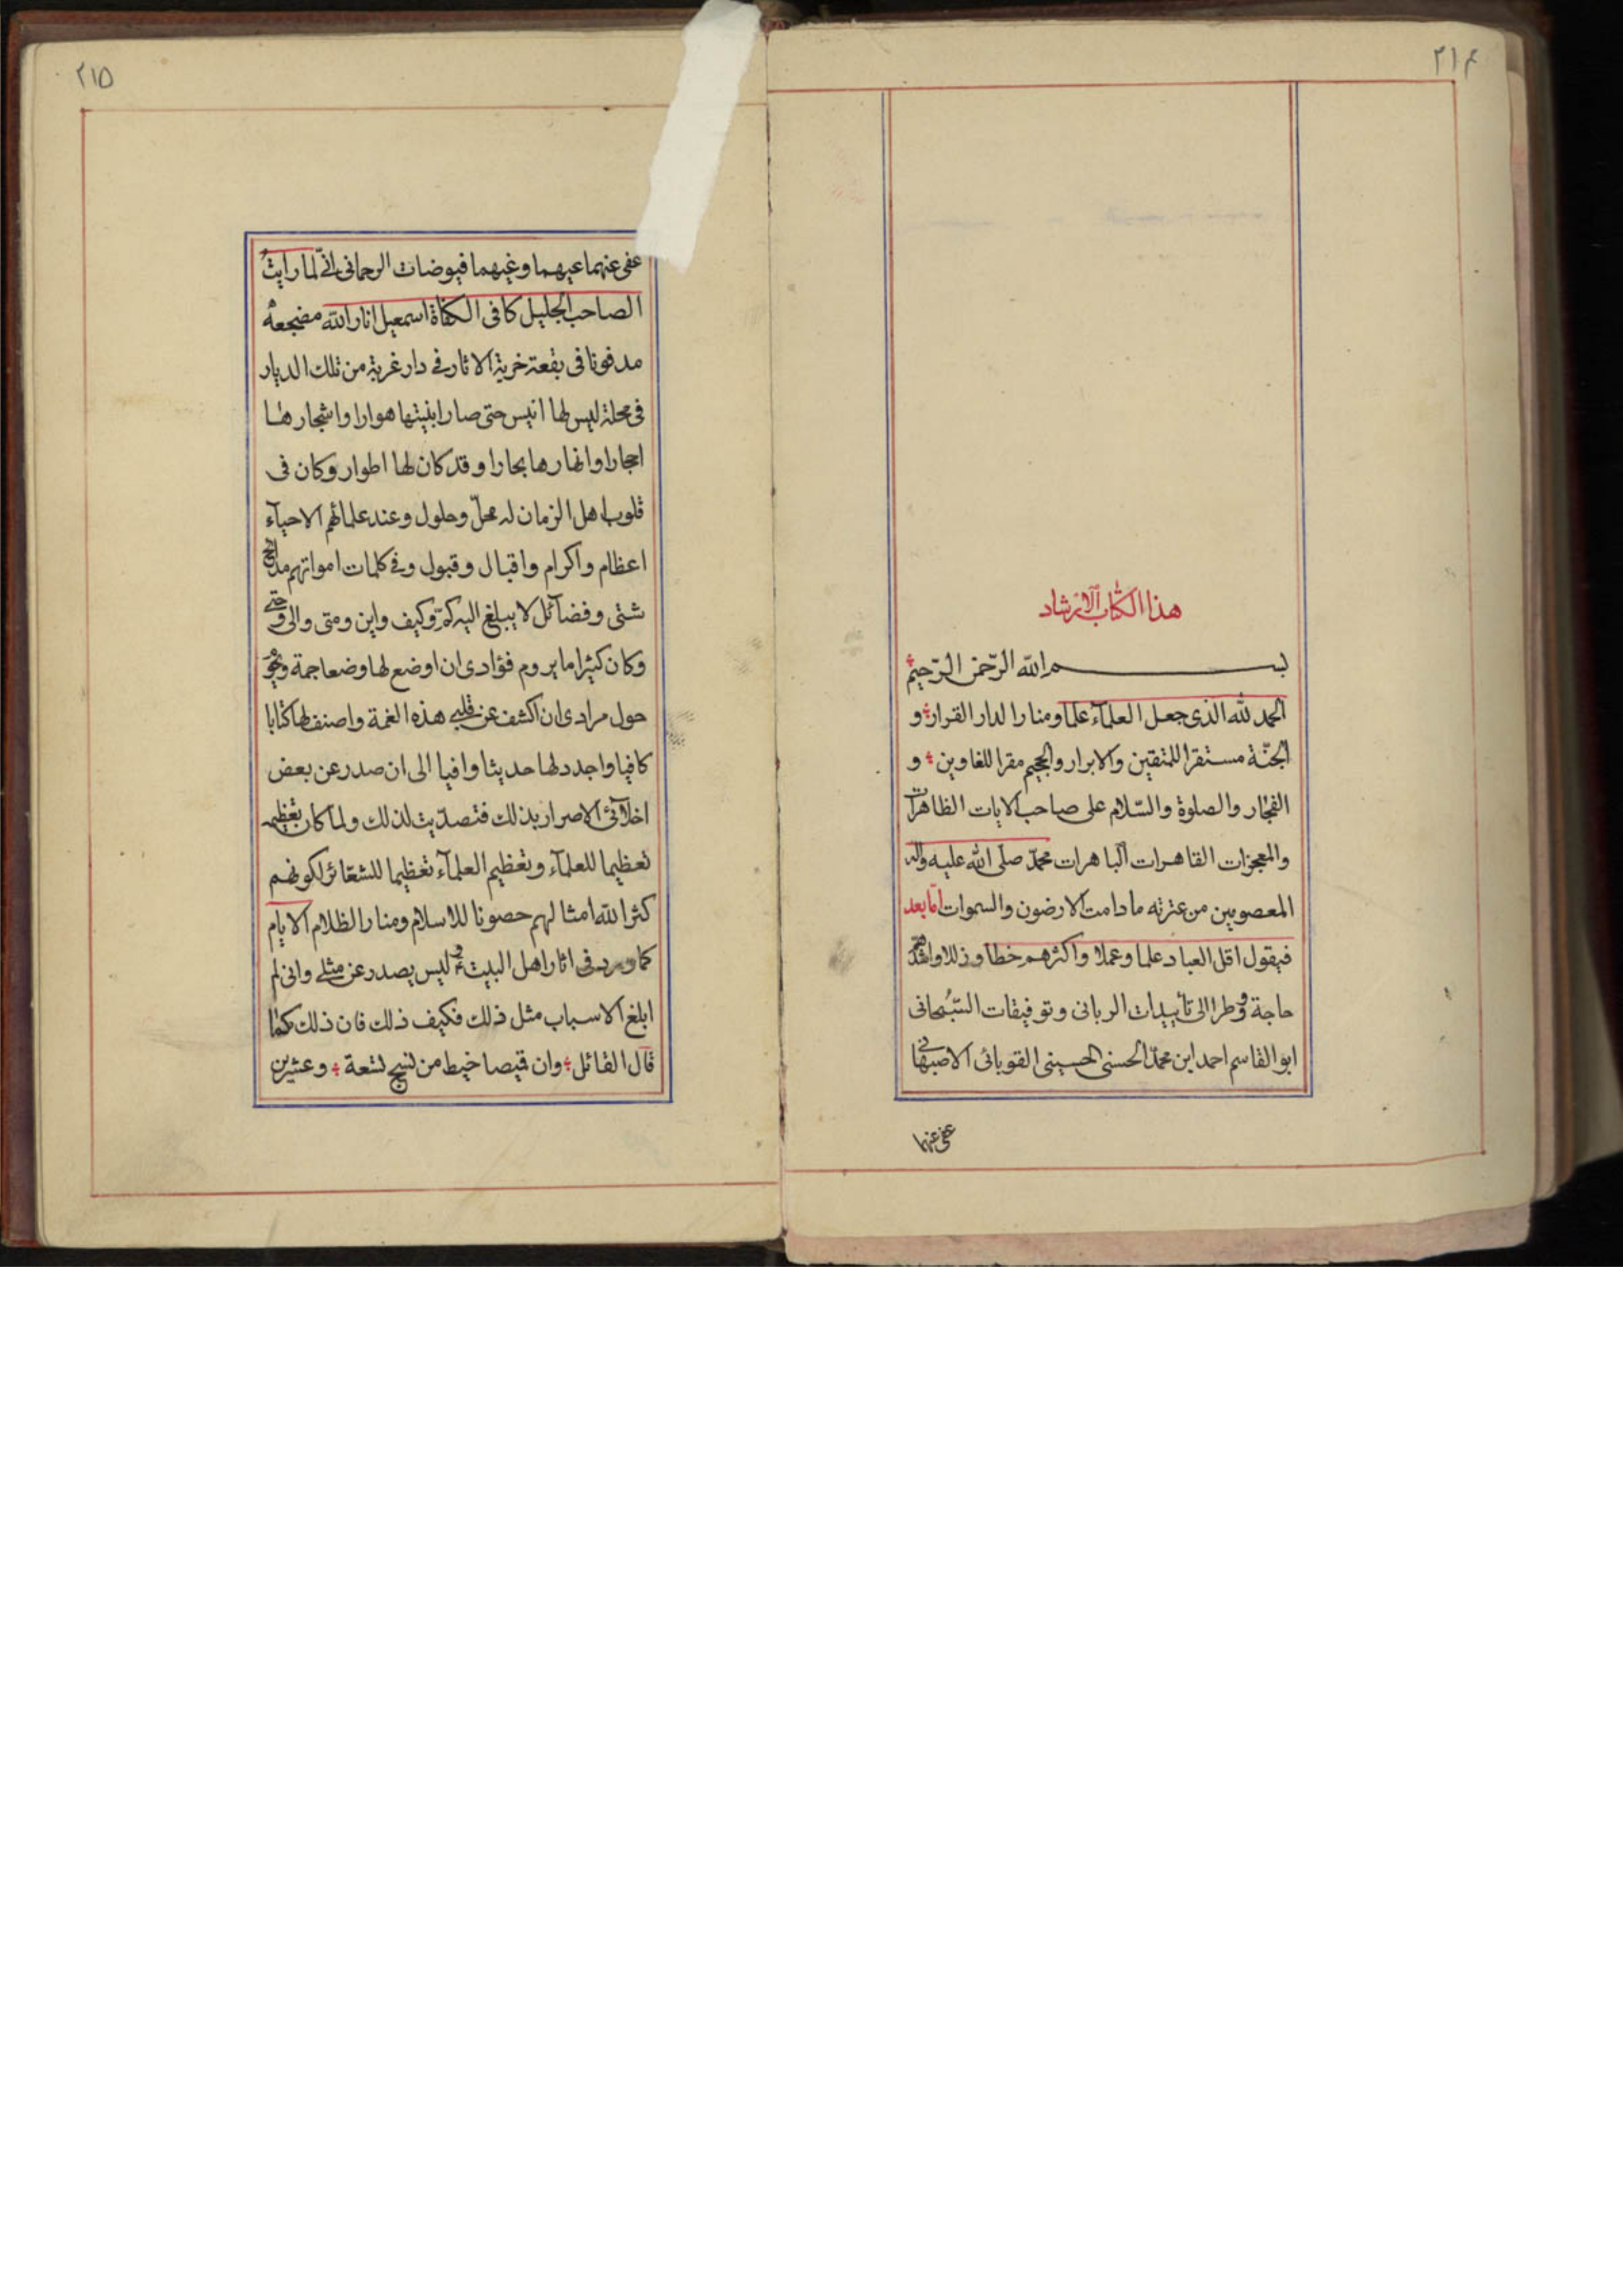 ٢١٤
هذا الكتاب الارشاد
بسم الله الرّحمن الرّحيم
الحمد لله الذى جعل العلمآء علما ومنارا لدار القرار و
الجنّة مستقرا للمتقين والابرار والجحيم مقرا للغاوين و
الفجّار والصلوة والسّلام على صاحب الايات الظاهرات
والمعجزات القاهرات الباهرات محمّد صلّى الله عليه واله
المعصومين من عترته ما دامت الارضون والسموات امّا بعد
فيقول اقل العباد علما وعملا واكثرهم خطأ وزللا واشدّهم
حاجة وفطرا الى تأييدات الربانى وتوفيقات السّبحانى
ابو القاسم احمد ابن محمّد الحسنى الحسينى القوبائى الاصبهانى
عفى عنهما
٢١٥
عفى عنهما عيهما وغيهما فيوضات الرحمانى انّى لمّا رايت
الصاحب الجليل كافى الكفاة اسمعيل انار الله مضجعه
مدفونا فى بقعة خربة الاثار فى دار غربة من تلك الديار
فى محلة ليس لها انيس حتى صار ابنيتها هوارا واشجارها
احجارا وانهارها بحارا وقد كان لها اطوار وكان فى
قلوب اهل الزمان له محلّ وحلول وعند علمائهم الاحيآء
اعظام واكرام واقبال وقبول وفى كلمات امواتهم مدائح
شتى وفضآئل لا يبلغ اليه كمّ وكيف واين ومتى والى وحتى
وكان كثيرا ما يروم فؤادى ان اوضع لها وضعا جمة ويحوّ
حول مرادى ان اكشف عن قلبى هذه الغمة واصنف لها كتابا
كافيا واجدد لها حديثا وافيا الى ان صدر عن بعض
اخلّآئى الاصرار بذلك فتصدّيت لذلك ولمّا كان تعظيمه
تعظيما للعلمآء وتعظيم العلمآء تعظيما للشعائر لكونهم
كثر الله امثالهم حصونا للاسلام ومنارا لظلام الايام
كما ورد فى اثار اهل البيت ليس يصدر عن مثلى وانى لم
ابلغ الاسباب مثل ذلك فكيف ذلك فان ذلك كما
قال القائل وان قميصا خيط من نسج تسعة وعشرين